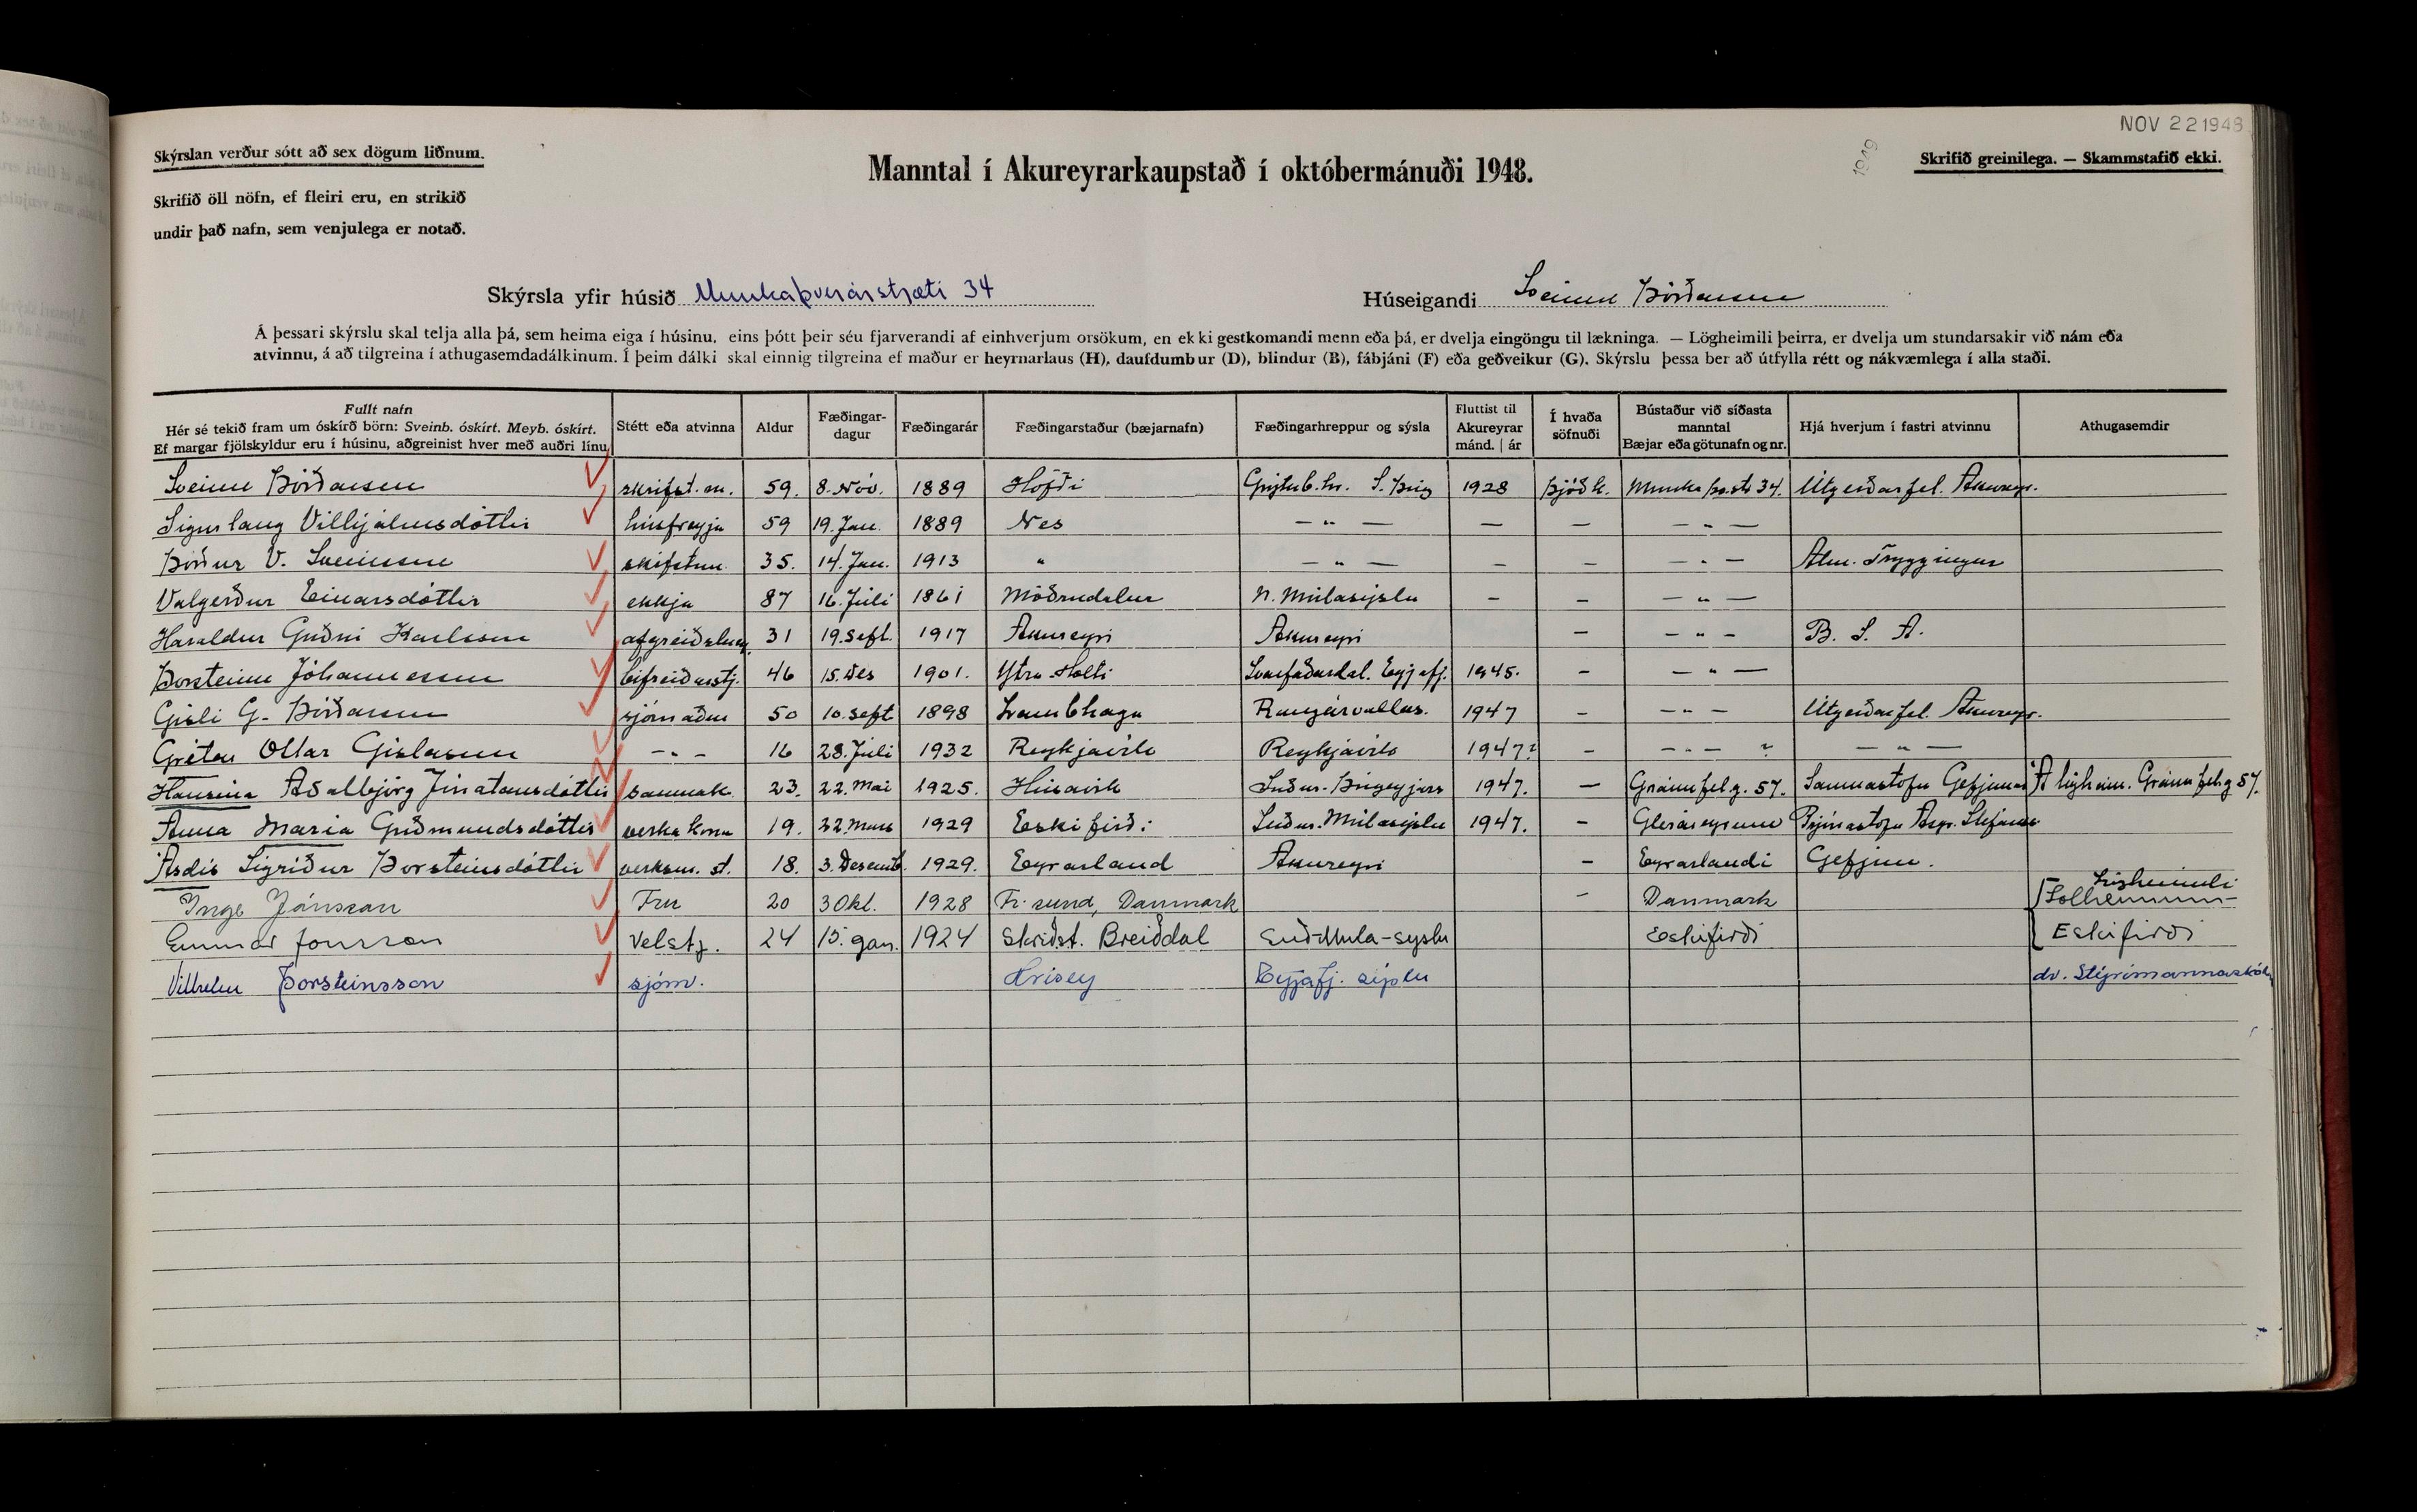 NOV 22 1948
1949
Skýrslan verður sótt að sex dögum liðnum.
Skrifið öll nöfn, ef fleiri eru, en strikið
undir það nafn, sem venjulega er notað.
Manntal í Akureyrarkaupstað í októbermánuði 1948.
Skrifið greinilega. — Skammstafið ekki.
Skýrsla yfir húsið Munkaþverárstræti 34 Húseigandi Sveinn Þórðarson
Á þessari skýrslu skal telja alla þá, sem heima eiga í húsinu, eins þótt þeir séu fjarverandi af einhverjum orsökum, en ekki gestkomandi menn eða þá, er dvelja eingöngu til lækninga. — Lögheimili þeirra, er dvelja um stundarsakir við nám eða
atvinnu, á að tilgreina í athugasemdadálkinum. Í þeim dálki skal einnig tilgreina ef maður er heyrnarlaus (H), daufdumbur (D), blindur (B), fábjáni (F) eða geðveikur (G). Skýrslu þessa ber að útfylla rétt og nákvæmlega í alla staði.
Fullt nafn
Hér sé tekið fram um óskírð börn: Sveinb. óskírt. Meyb. óskírt.
Ef margar fjölskyldur eru í húsinu, aðgreinist hver með auðri línu.
Stétt eða atvinna
Aldur
Fæðingar-
dagur
Fæðingarár
Fæðingarstaður (bæjarnafn)
Fæðingarhreppur og sýsla
Fluttist til
Akureyrar
mánd. | ár
Í hvaða
söfnuði
Bústaður við síðasta
manntal
Bæjar eða götunafn og nr.
Hjá hverjum í fastri atvinnu
Athugasemdir
Sveinn Þórðarson skrifst.m. 59. 8. Nóv. 1889 Höfði Grýtub.hr. S. Þing 1928 Þjóðk. Munkaþv.str 34. Útgerðarfel. Akureyr.
Sigurlaug Vilhjálmsdóttir húsfreyja 59 19. Jan. 1889 Nes — " — — — — " —
Þórður V. Sveinsson skifstm. 35. 14. Jan. 1913 " — " — — — — " — Alm. Tryggingar
Valgerður Einarsdóttir ekkja 87 16. Júlí 1861 Möðrudalur N. Múlasýslu — — — " —
Haraldur Guðni Karlsson afgreiðslum. 31 19. sept. 1917 Akureyri Akureyri — — " — B. S. A.
Þorsteinn Jóhannesson bifreiðarstj. 46 15. Des 1901. Ytra-Holti Svarfaðardal. Eyjafj. 1945. — — " —
Gísli G. Þórðarson sjómaður 50 10. sept 1898 Lambhaga Rangárvallas. 1947 — — " — Útgerðarfel. Akureyr.
Grétar Ottar Gíslason — " — 16 28. Júlí 1932 Reykjavík Reykjavík 1947? — — " — ? — " —
Hansína Aðalbjörg Jónatansdóttir saumak. 23. 22. Mai 1925. Húsavík Suður-Þingeyjars 1947. — Gránufelg. 57. Saumastofu Gefjunar Á lögheim. Gránufelg 57.
Anna María Guðmundsdóttir verkakona 19. 22 Mars 1929 Eskifirði Suður-Múlasýslu 1947. — Gleráreyrum Prjónastofu Ásgr. Stefáns
Ásdís Sigríður Þorsteinsdóttir verksm. st. 18. 3. Desemb. 1929. Eyrarland Akureyri — Eyrarlandi Gefjun.
Inge Jónsson Fru 20 3 Okt. 1928 Fr. sund, Danmark — Danmark Lögheimili
Gunnar Jónsson Velstj. 24 15. jan. 1924 Skriðst. Breiðdal Suð-Mula-syslu Eskifirði Eskifirði
Vilhelm Þorsteinsson sjóm. Hrísey Eyjafj. sýslu dv. Stýrimannaskóla